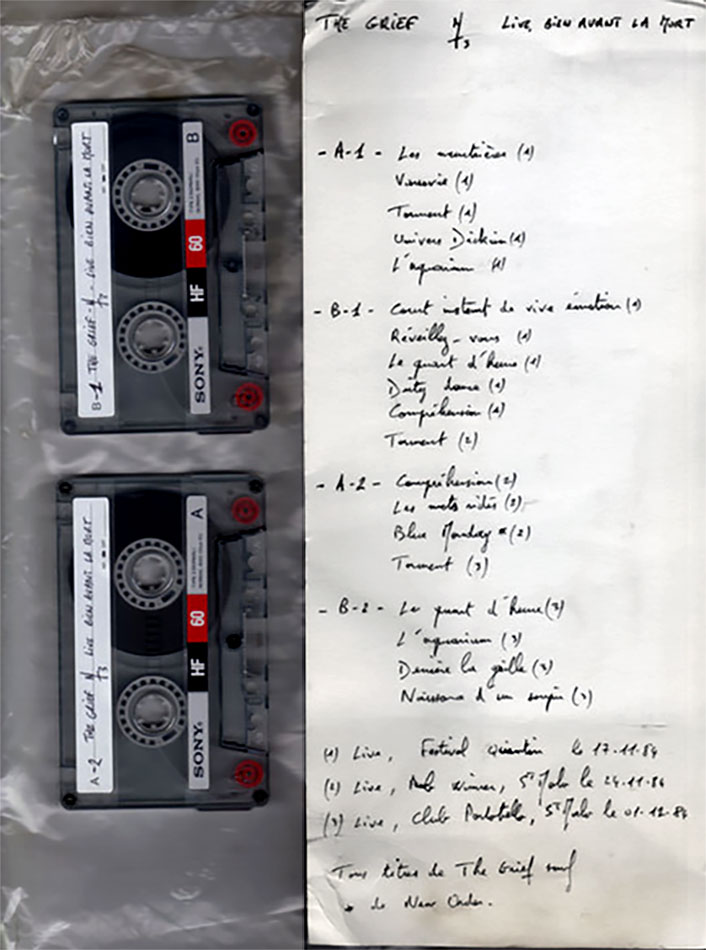 THE GRIEF LIVE, BIEN AVANT LA MORT
- A-1 - Les meurtrières (1)
Varsovie (1)
Torment (1)
Univers Dickien (1)
L'aquarium (1)
- B-1 - Court instant de vive émotion (1)
Réveillez-vous (1)
Le quart d'heure (1)
Dirty dance (1)
Compréhension (1)
Torment (2)
- A-2 - Compréhension (2)
Les mots vidés (2)
Blue Monday * (2)
Torment (3)
- B-2 - Le quart d'heure (3)
L'aquarium (3)
Derrière la grille (3)
Naissance d'un soupir (3)
(1) Live, Festival le 17-11-84
(2) Live, Pub Winner, St Malo le 24-11-84
(3) Live, Club Portobello, St Malo le 01-12-84
Tous titres de The Grief sauf
* de New Order.
B-1 THE GRIEF - LIVE BIEN AVANT LA MORT
SONY HF 60 B
A-2 THE GRIEF LIVE BIEN AVANT LA MORT
SONY HF 60 A